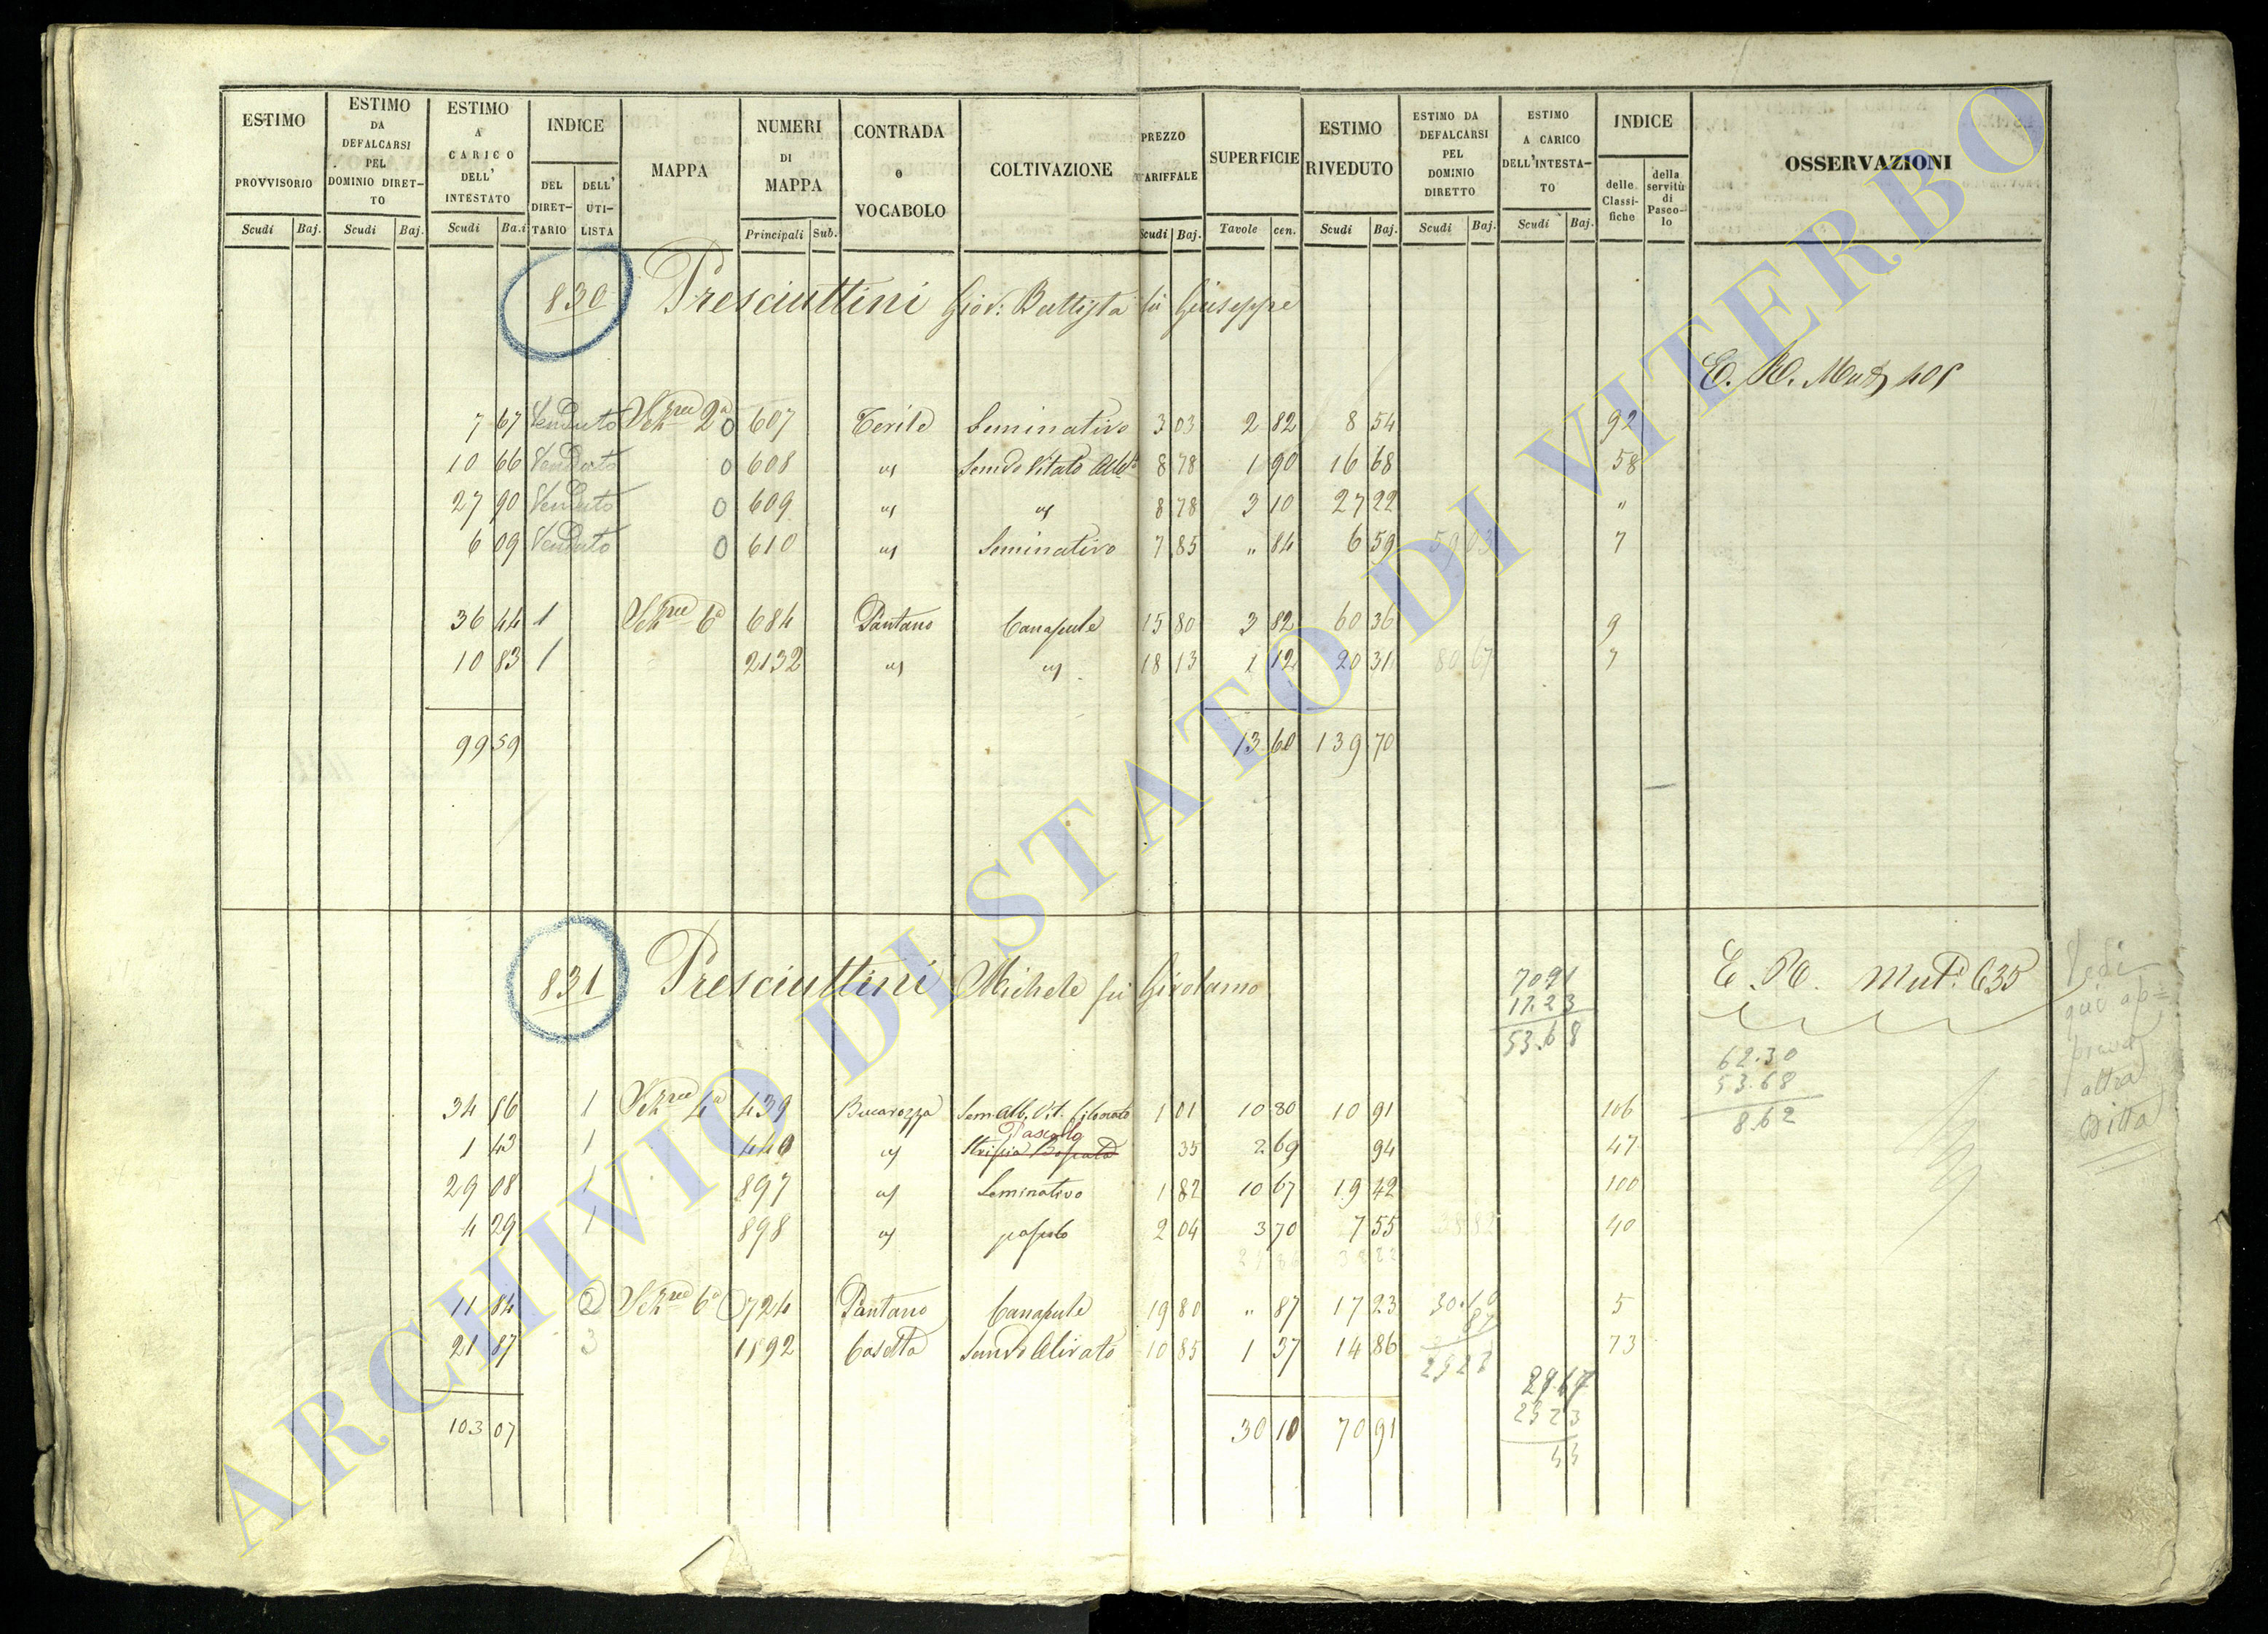 ESTIMO PROVVISORIO
ESTIMO DA DEFALCARSI PEL DOMINIO DIRETTO
ESTIMO A CARICO DELL' INTESTATO
INDICE
DEL DIRETTARIO
DELL' UTILISTA
MAPPA
NUMERI DI MAPPA
CONTRADA O VOCABOLO
COLTIVAZIONE
PREZZO TARIFFALE
SUPERFICIE
ESTIMO RIVEDUTO
ESTIMO DA DEFALCARSI PEL DOMINIO DIRETTO
ESTIMO A CARICO DELL'INTESTATO
INDICE
delle Classifiche
della servitù di Pascolo
OSSERVAZIONI
Scudi Baj. Scudi Baj. Scudi Ba.i Principali Sub. Scudi Baj. Tavole cen. Scudi Baj. Scudi Baj. Scudi Baj.
830 Presciuttini Giov: Battista fù Giuseppe
7 67 Venduto 2a 0 607 Cerile Seminativo 3 03 2 82 8 54 92
10 66 Venduto 0 608 " Semvo Vitato 8 78 1 90 16 68 58
27 90 Venduto 0 609 " " 8 78 3 10 27 22 "
6 09 Venduto 0 610 " Seminativo 7 85 " 84 6 59 59 03 7
36 44 1 6a 684 Pantano Canapule 15 80 3 82 60 36 9
10 83 1 2132 " " 18 13 1 12 20 31 80 67 7
99 59 13 60 139 70
831 Presciuttini Michele fù Girolamo
7091
17.23
53.68
Mut. 635
Vedi
qui ap=
altra
Ditta
62.30
53.68
8.62
34 86 1 4a 439 Bucarozza Sem. Alb. Vit. filonato 1 01 10 80 10 91 106
Pascolo
1 43 1 440 " 35 2 69 94 47
29 08 1 897 " Seminativo 1 82 10 67 19 42 100
4 29 1 898 " pascolo 2 04 3 70 7 55 38 82 40
11 84 2 6a 724 Pantano Canapule 19 80 " 87 17 23 30.10 5
87
21 87 3 1592 Casetta Semvo Olivato 10 85 1 37 14 86 73
2923
2923
103 07 30 10 70 91
ARCHIVIO DI STATO DI VITERBO